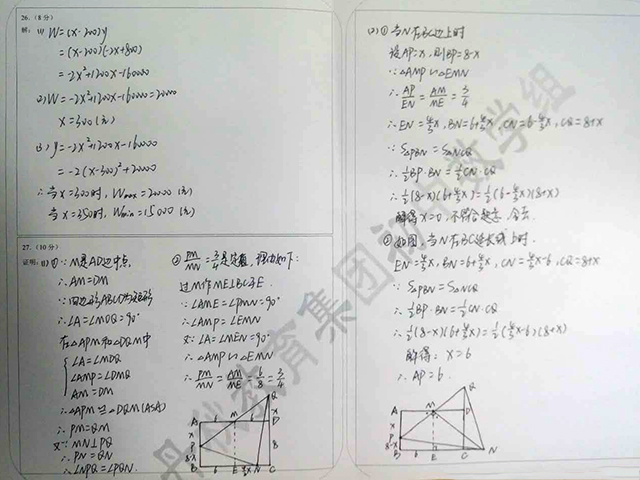 26. (8分)
解: (1) W=(x-200)y
=(x-200)(-2x+800)
=-2x²+1200x-160000
(2) W=-2x²+1200x-160000=20000
x=300(元)
(3) y=-2x²+1200x-160000
=-2(x-300)²+20000
∴当x=300时, Wmax=20000(元)
当x=350时, Wmin=15000(元)
27. (10分)
证明: (1)①∵M是AD边中点,
∴AM=DM
∵四边形ABCD为矩形
∴∠A=∠MDQ=90°
在△APM和△DQM中
∠A=∠MDQ
∠AMP=∠DMQ
AM=DM
∴△APM≌△DQM(ASA)
∴PM=QM
又∵MN⊥PQ
∴PN=QN
∴∠NPQ=∠PQN.
② PM/MN=3/4是定值, 理由如下:
过M作ME⊥BC于E.
∵∠AME=∠PMN=90°
∴∠AMP=∠EMN
又∵∠A=∠MEN=90°
∴△AMP∽△EMN
∴PM/MN=AM/ME=6/8=3/4
Q
x
A 6 M 6 D
x
P
8-x
8
B 6 E N C
(2)①当N在BC边上时
设AP=x, 则BP=8-x
∵△AMP∽△EMN
∴AP/EN=AM/ME=3/4
∴EN=4/3x, BN=6+4/3x, CN=6-4/3x, CQ=8+x
∵S△PBN=S△NCQ
∴1/2BP·BN=1/2CN·CQ
∴1/2(8-x)(6+4/3x)=1/2(6-4/3x)(8+x)
解得x=0, 不符合题意, 舍去.
②如图, 当N在BC延长线上时.
EN=4/3x, BN=6+4/3x, CN=4/3x-6, CQ=8+x
∵S△PBN=S△NCQ
∴1/2BP·BN=1/2CN·CQ
∴1/2(8-x)(6+4/3x)=1/2(4/3x-6)(8+x)
解得: x=6
∴AP=6.
Q
x
A M D
x
P
8-x
B 6 E C N
教育集团初中数学组